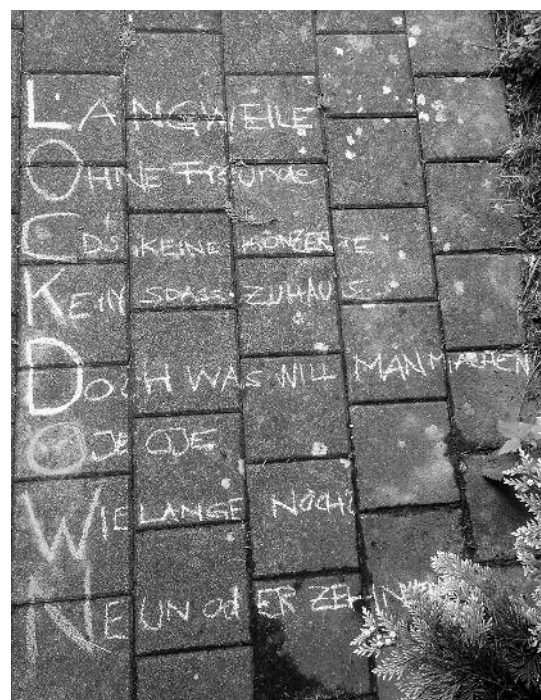 LANGWEILE
OHNE Freunde
CDS KEINE KONZERTE
KEIN SPASS ZUHAUS
DOCH WAS WILL MAN MACHEN
OJE OJE
WIE LANGE NOCH?
NEUN OdER ZEHN